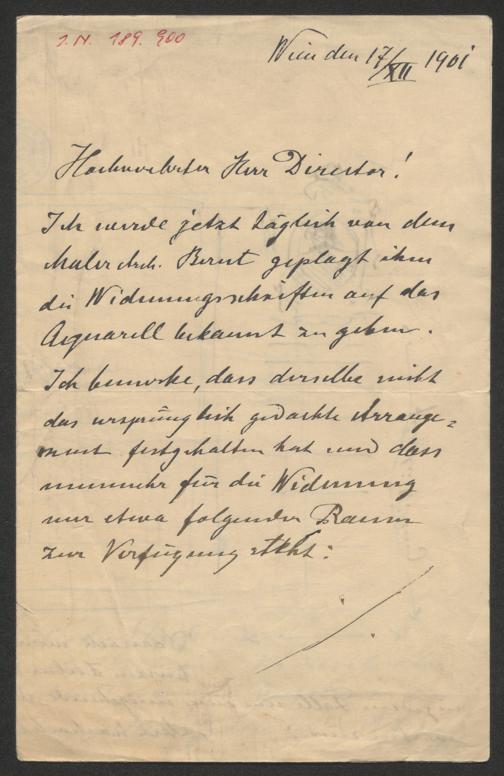 I.N. 189.900
Wien den 17/XII 1901
Hochverehrter Herr Director!
Ich werde jetzt täglich von dem
Maler Arch. Bernt geplagt ihm
die Widmungsschriften auf das
Aquarell bekannt zu geben.
Ich bemerke, dass derselbe nicht
das ursprünglich gedachte Arrange=
ment festgehalten hat und dass
nunmehr für die Widmung
nur etwa folgender Raum
zur Verfügung steht: